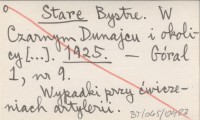 o Stare Bystre. W
Czarnym Dunajcu i okoli-
cy [...]. 1925. — Góral
1, nr 9.
Wypadki przy ćwicze-
niach artylerii.